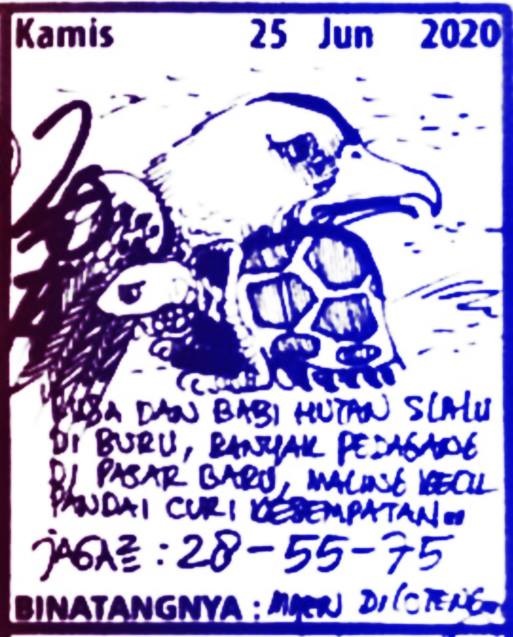 Kamis 25 Jun 2020
RUSA DAN BABI HUTAN SLALU
DI BURU, BANYAK PEDAGANG
DI PASAR BARU, MALING KECIL
PANDAI CURI KESEMPATAN...
JAGA2 : 28-55-75
BINATANGNYA : MAEN DILOTENG...